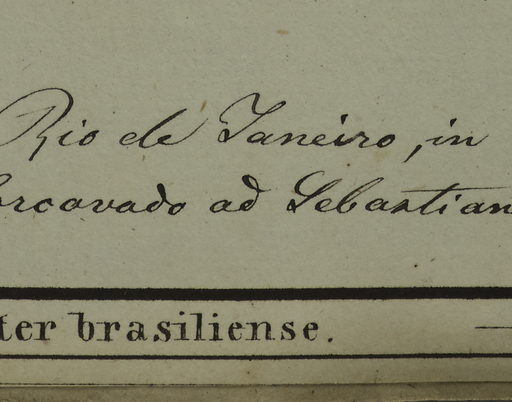 Rio de Janeiro, in
orcavado ad Sebastian
ter brasiliense.